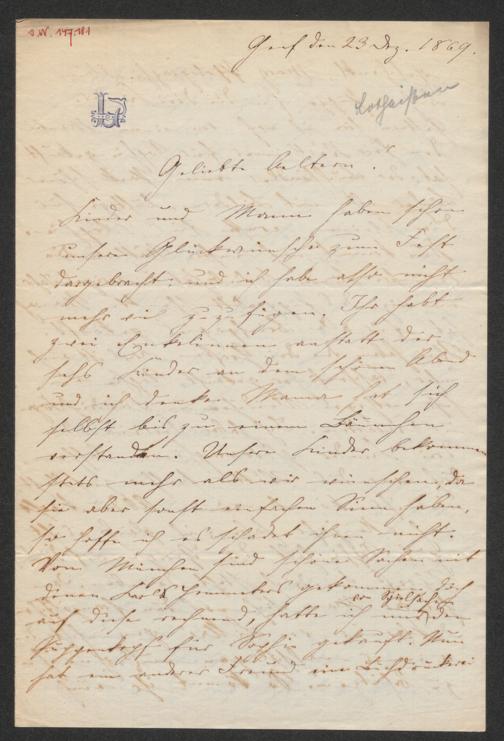 Genf den 23 Dez. 1869.
Geliebte Aeltern!
Kinder und Mama haben schon
unsere Glückwünsche zum Fest
dargebracht, und ich habe also nicht
mehr viel zuzufügen. Ihr habt
zwei Enkelinnen anstatt der
sechs Kinder an dem schönen Abend
und ich denke Mama hat sich
selbst bis zu einem Bäumchen
verstanden. Unsere Kinder bekommen
stets mehr als wir wünschen, da
sie aber sonst einfachen Sinn haben,
so hoffe ich es schadet ihnen nicht.
Von München sind schöne Sachen mit
gekommen. Ich
auf diese rechnend, hatte ich nur den
Puppenkopf für Sophie gekauft. Nun
hat ein anderer Freund eine